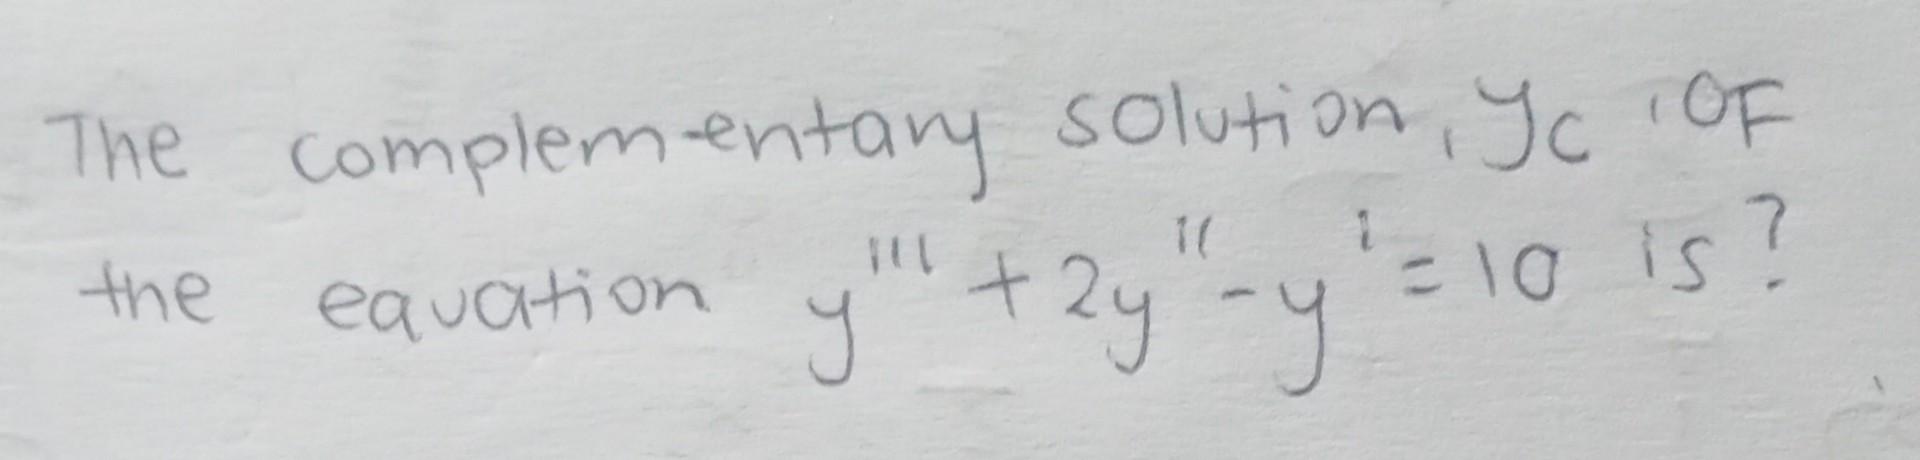 The complementary solution, yc, OF
the equation y''' + 2y'' - y' = 10 is?